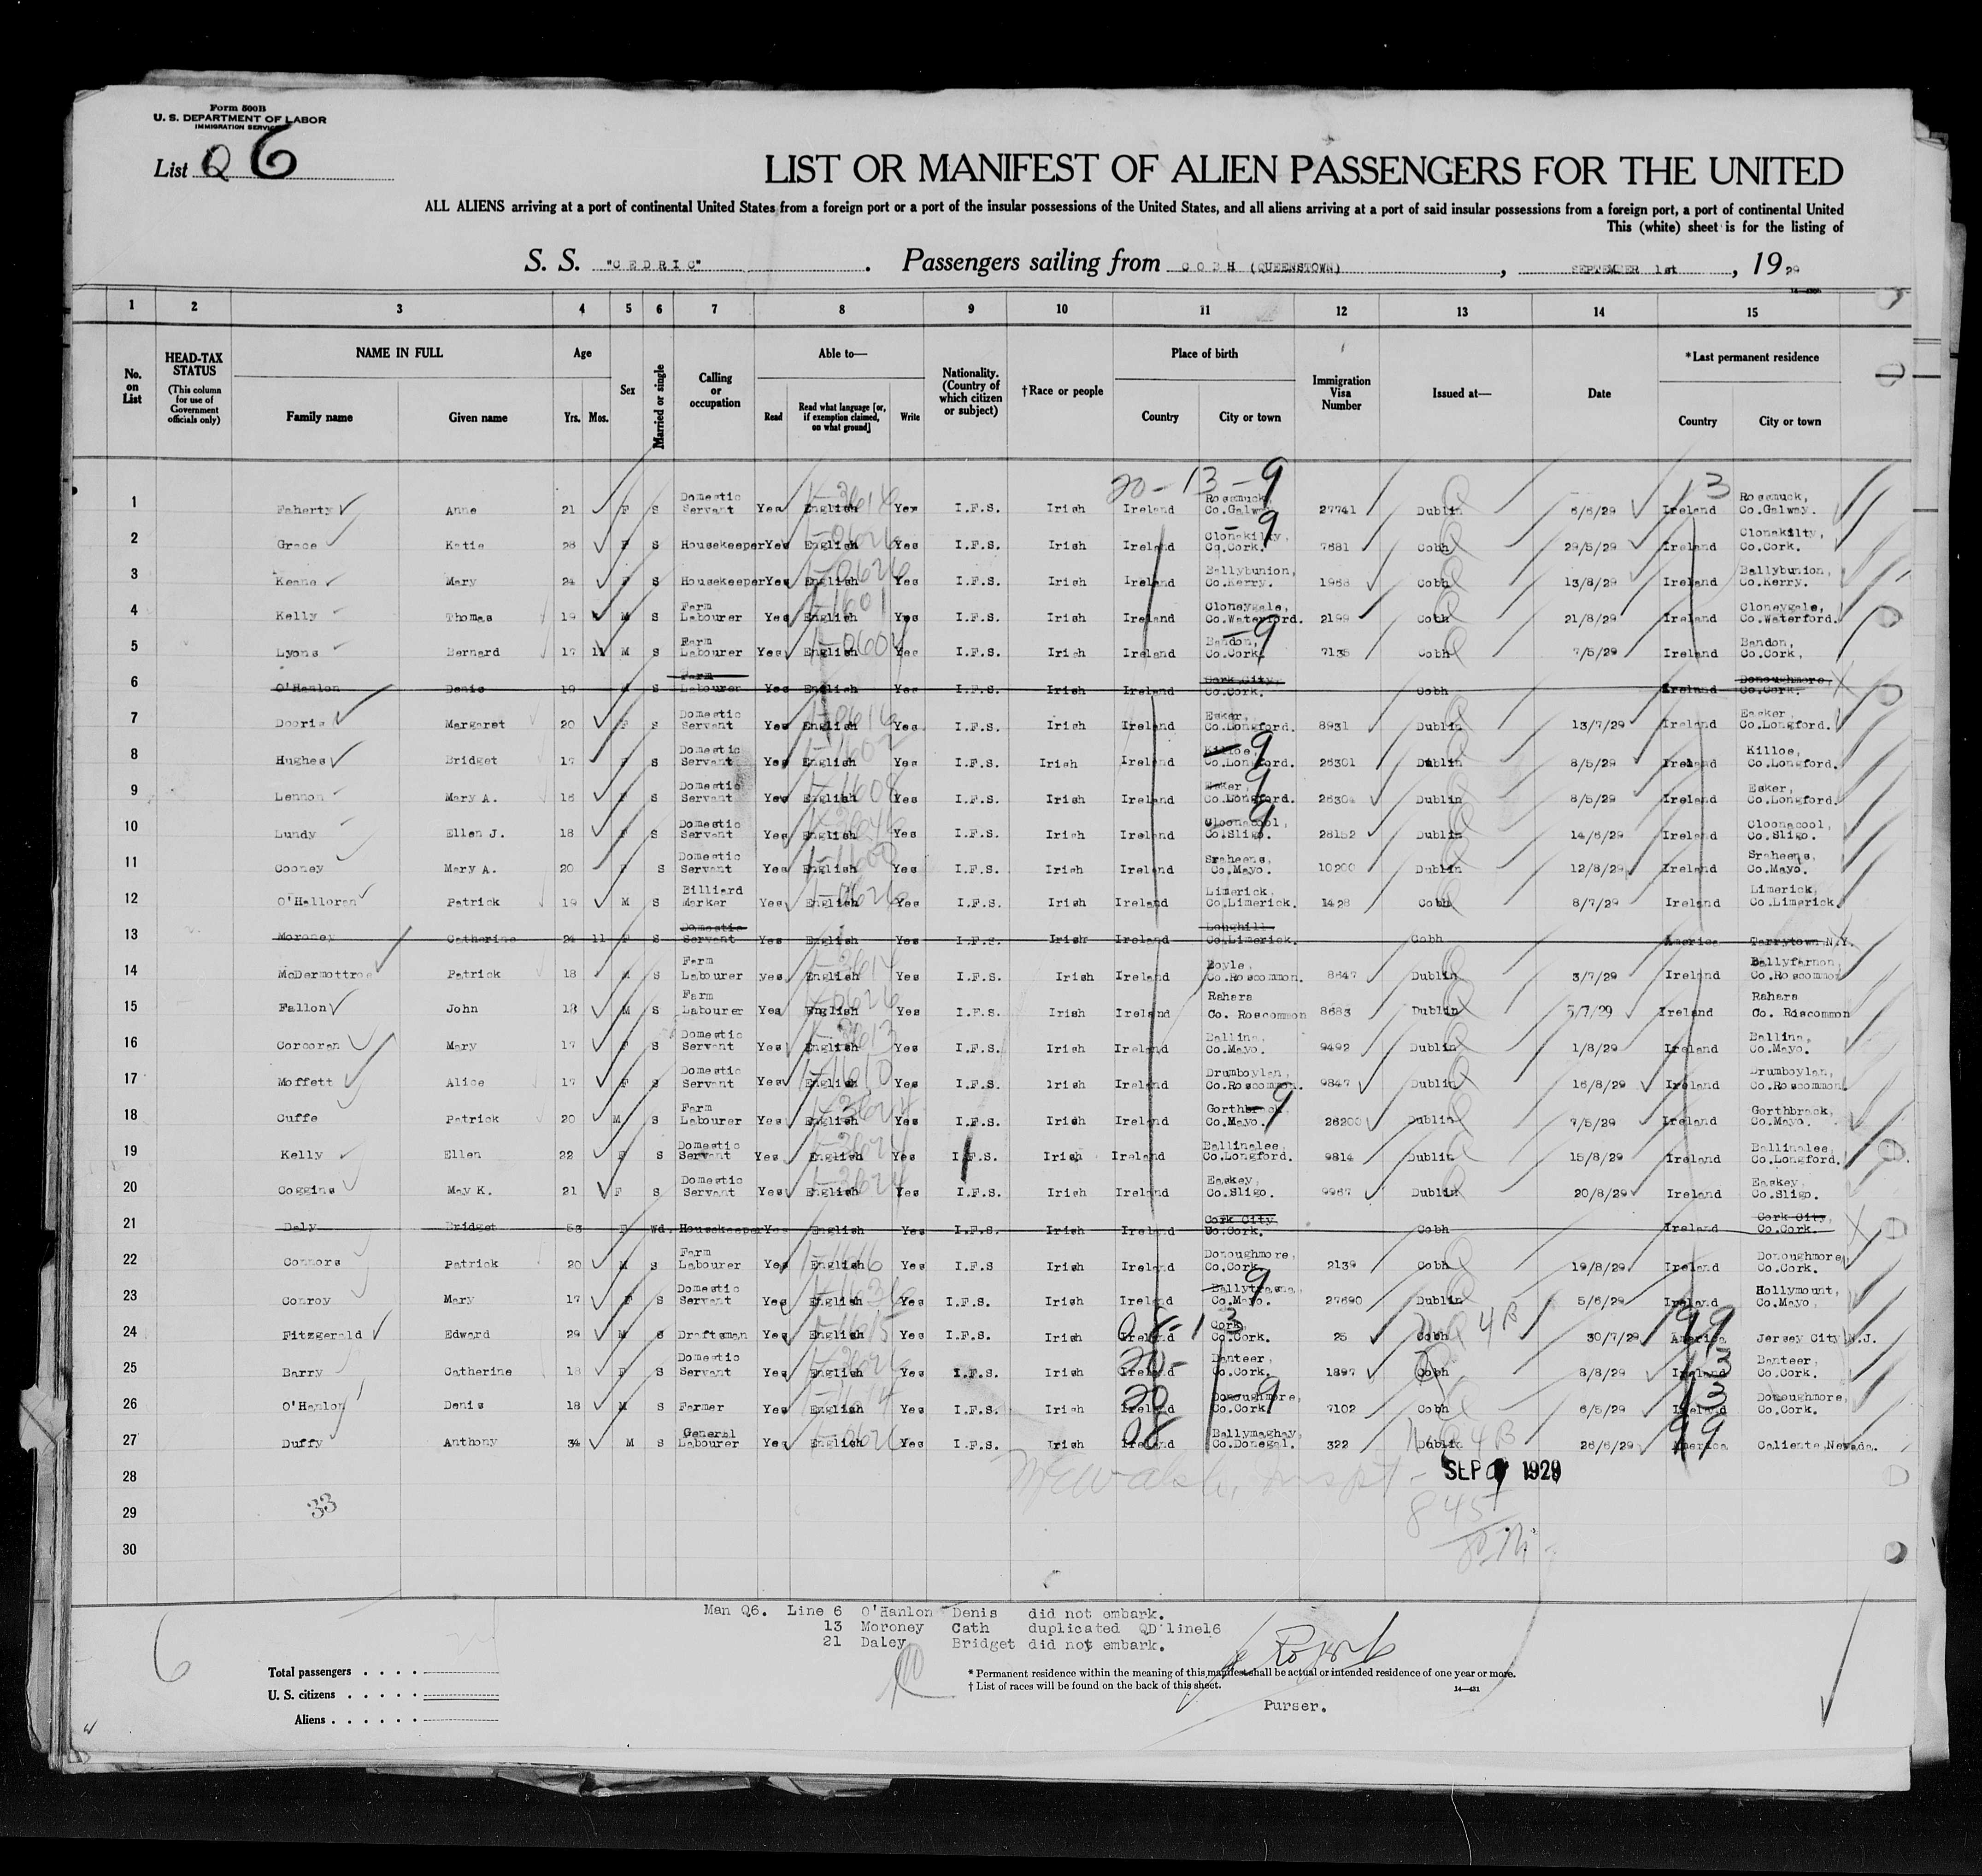 Form 500B
U. S. DEPARTMENT OF LABOR
IMMIGRATION SERVICE
List Q 6
LIST OR MANIFEST OF ALIEN PASSENGERS FOR THE UNITED
ALL ALIENS arriving at a port of continental United States from a foreign port or a port of the insular possessions of the United States, and all aliens arriving at a port of said insular possessions from a foreign port, a port of continental United
This (white) sheet is for the listing of
S. S. "CEDRIC". Passengers sailing from COBH (QUEENSTOWN), SEPTEMBER 1st, 1929
1 2 3 4 5 6 7 8 9 10 11 12 13 14 15
No. on List HEAD-TAX STATUS (This column for use of Government officials only) NAME IN FULL Family name Given name Age Yrs. Mos. Sex Married or single Calling or occupation Able to— Read Read what language [or, if exemption claimed, on what ground] Write Nationality. (Country of which citizen or subject) †Race or people Place of birth Country City or town Immigration Visa Number Issued at— Date *Last permanent residence Country City or town
20-13-9 13
1 Faherty Anne 21 F S Domestic Servant Yes English Yes I.F.S. Irish Ireland Rosmuck, Co.Galway 27741 Dublin 6/6/29 Ireland Rosmuck, Co.Galway.
2 Grace Katie 26 F S Housekeeper Yes English Yes I.F.S. Irish Ireland Clonakilty, Co.Cork. 7681 Cobh 29/5/29 Ireland Clonakilty, Co.Cork.
3 Keane Mary 24 F S Housekeeper Yes English Yes I.F.S. Irish Ireland Ballybunion, Co.Kerry. 1968 Cobh 13/8/29 Ireland Ballybunion, Co.Kerry.
4 Kelly Thomas 19 M S Farm Labourer Yes English Yes I.F.S. Irish Ireland Cloneygale, Co.Waterford. 2199 Cobh 21/8/29 Ireland Cloneygale, Co.Waterford.
5 Lyons Bernard 17 11 M S Farm Labourer Yes English Yes I.F.S. Irish Ireland Bandon, Co.Cork. 7135 Cobh 7/5/29 Ireland Bandon, Co.Cork,
6 O'Hanlon Denis 19 M S Farm Labourer Yes English Yes I.F.S. Irish Ireland Cork City, Co.Cork. Cobh Ireland Donoughmore, Co.Cork.
7 Dooris Margaret 20 F S Domestic Servant Yes English Yes I.F.S. Irish Ireland Esker, Co.Longford. 8931 Dublin 13/7/29 Ireland Esker, Co.Longford.
8 Hughes Bridget 17 F S Domestic Servant Yes English Yes I.F.S. Irish Ireland Killoe, Co.Longford. 26301 Dublin 8/5/29 Ireland Killoe, Co.Longford.
9 Lennon Mary A. 18 F S Domestic Servant Yes English Yes I.F.S. Irish Ireland Esker, Co.Longford. 26304 Dublin 8/5/29 Ireland Esker, Co.Longford.
10 Lundy Ellen J. 18 F S Domestic Servant Yes English Yes I.F.S. Irish Ireland Cloonacool, Co.Sligo. 28152 Dublin 14/6/29 Ireland Cloonacool, Co.Sligo.
11 Cooney Mary A. 20 F S Domestic Servant Yes English Yes I.F.S. Irish Ireland Sraheens, Co.Mayo. 10200 Dublin 12/8/29 Ireland Sraheens, Co.Mayo.
12 O'Halloran Patrick 19 M S Billiard Marker Yes English Yes I.F.S. Irish Ireland Limerick, Co.Limerick. 1428 Cobh 8/7/29 Ireland Limerick, Co.Limerick.
13 Moroney Catherine 24 11 F S Domestic Servant Yes English Yes I.F.S. Irish Ireland Loughill Co.Limerick. Cobh America Tarrytown N.Y.
14 McDermottroe Patrick 18 M S Farm Labourer yes English Yes I.F.S. Irish Ireland Boyle, Co.Roscommon. 8647 Dublin 3/7/29 Ireland Ballyfarnon, Co.Roscommon
15 Fallon John 18 M S Farm Labourer Yes English Yes I.F.S. Irish Ireland Rahara Co. Roscommon 8683 Dublin 5/7/29 Ireland Rahara Co. Roscommon
16 Corcoran Mary 17 F S Domestic Servant Yes English Yes I.F.S. Irish Ireland Ballina, Co.Mayo. 9492 Dublin 1/8/29 Ireland Ballina, Co.Mayo.
17 Moffett Alice 17 F S Domestic Servant Yes English Yes I.F.S. Irish Ireland Drumboylan, Co.Roscommon. 9847 Dublin 16/8/29 Ireland Drumboylan, Co.Roscommon.
18 Cuffe Patrick 20 M S Farm Labourer Yes English Yes I.F.S. Irish Ireland Gorthbrack, Co.Mayo. 26200 Dublin 7/5/29 Ireland Gorthbrack, Co.Mayo.
19 Kelly Ellen 22 F S Domestic Servant Yes English Yes I.F.S. Irish Ireland Ballinalee, Co.Longford. 9814 Dublin 15/8/29 Ireland Ballinalee, Co.Longford.
20 Coggins May K. 21 F S Domestic Servant Yes English Yes I.F.S. Irish Ireland Easkey, Co.Sligo. 9967 Dublin 20/8/29 Ireland Easkey, Co.Sligo.
21 Daly Bridget 53 F Wd. Housekeeper Yes English Yes I.F.S. Irish Ireland Cork City Co.Cork. Cobh Ireland Cork City, Co.Cork.
22 Connors Patrick 20 M S Farm Labourer Yes English Yes I.F.S Irish Ireland Donoughmore, Co.Cork. 2139 Cobh 19/8/29 Ireland Donoughmore, Co.Cork.
23 Conroy Mary 17 F S Domestic Servant Yes English Yes I.F.S. Irish Ireland Co.Mayo. 27690 Dublin 5/6/29 Ireland Hollymount, Co.Mayo
24 Fitzgerald Edward 29 M S Draftsman Yes English Yes I.F.S. Irish Ireland Cork, Co.Cork. 25 Cobh 4B 30/7/29 America 99 Jersey City N.J.
25 Barry Catherine 18 F S Domestic Servant Yes English Yes I.F.S. Irish Ireland Banteer, Co.Cork. 1897 Cobh 8/8/29 Ireland Banteer, Co.Cork.
26 O'Hanlon Denis 18 M S Farmer Yes English Yes I.F.S. Irish Ireland Donoughmore, Co.Cork. 7102 Cobh 6/5/29 Ireland Donoughmore, Co.Cork.
27 Duffy Anthony 34 M S General Labourer Yes English Yes I.F.S. Irish Ireland Ballymaghay, Co.Donegal. 322 Dublin 4B 26/6/29 America 99 Caliente, Nevada.
28 SEP 1929
29 33 845
30
Man Q6. Line 6 O'Hanlon Denis did not embark.
13 Moroney Cath duplicated QD line16
21 Daley Bridget did not embark.
6
Total passengers
U. S. citizens
Aliens
* Permanent residence within the meaning of this manifest shall be actual or intended residence of one year or more.
† List of races will be found on the back of this sheet.
14—431
Purser.